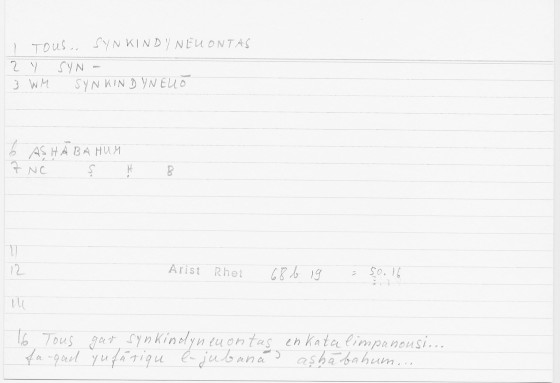 1 TOUS.. SYNKINDYNEUONTAS
2 Y SYN-
3 WM SYNKINDYNEUŌ
6 AṢḤĀBAHUM
7 NC Ṣ Ḥ B
11
12 Arist Rhet 68b 19 = 50.16
14
16 Tous gar synkindyneuontas enkatalimpanousi...
fa-qad yufāriqu l-jubanāʾ aṣḥābahum...